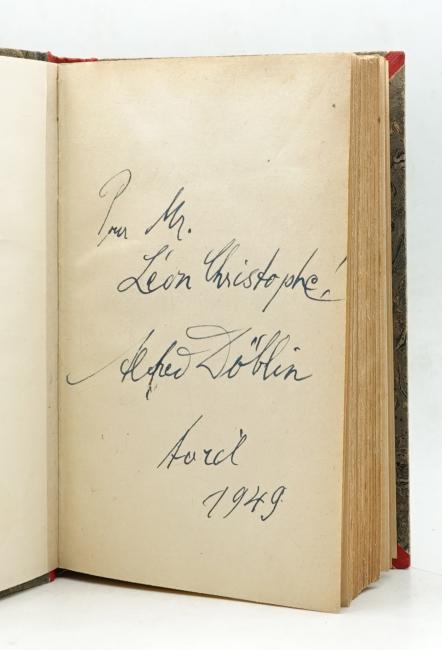 Pour Mr.
Léon Christophe!
Alfred Döblin
Avril
1949